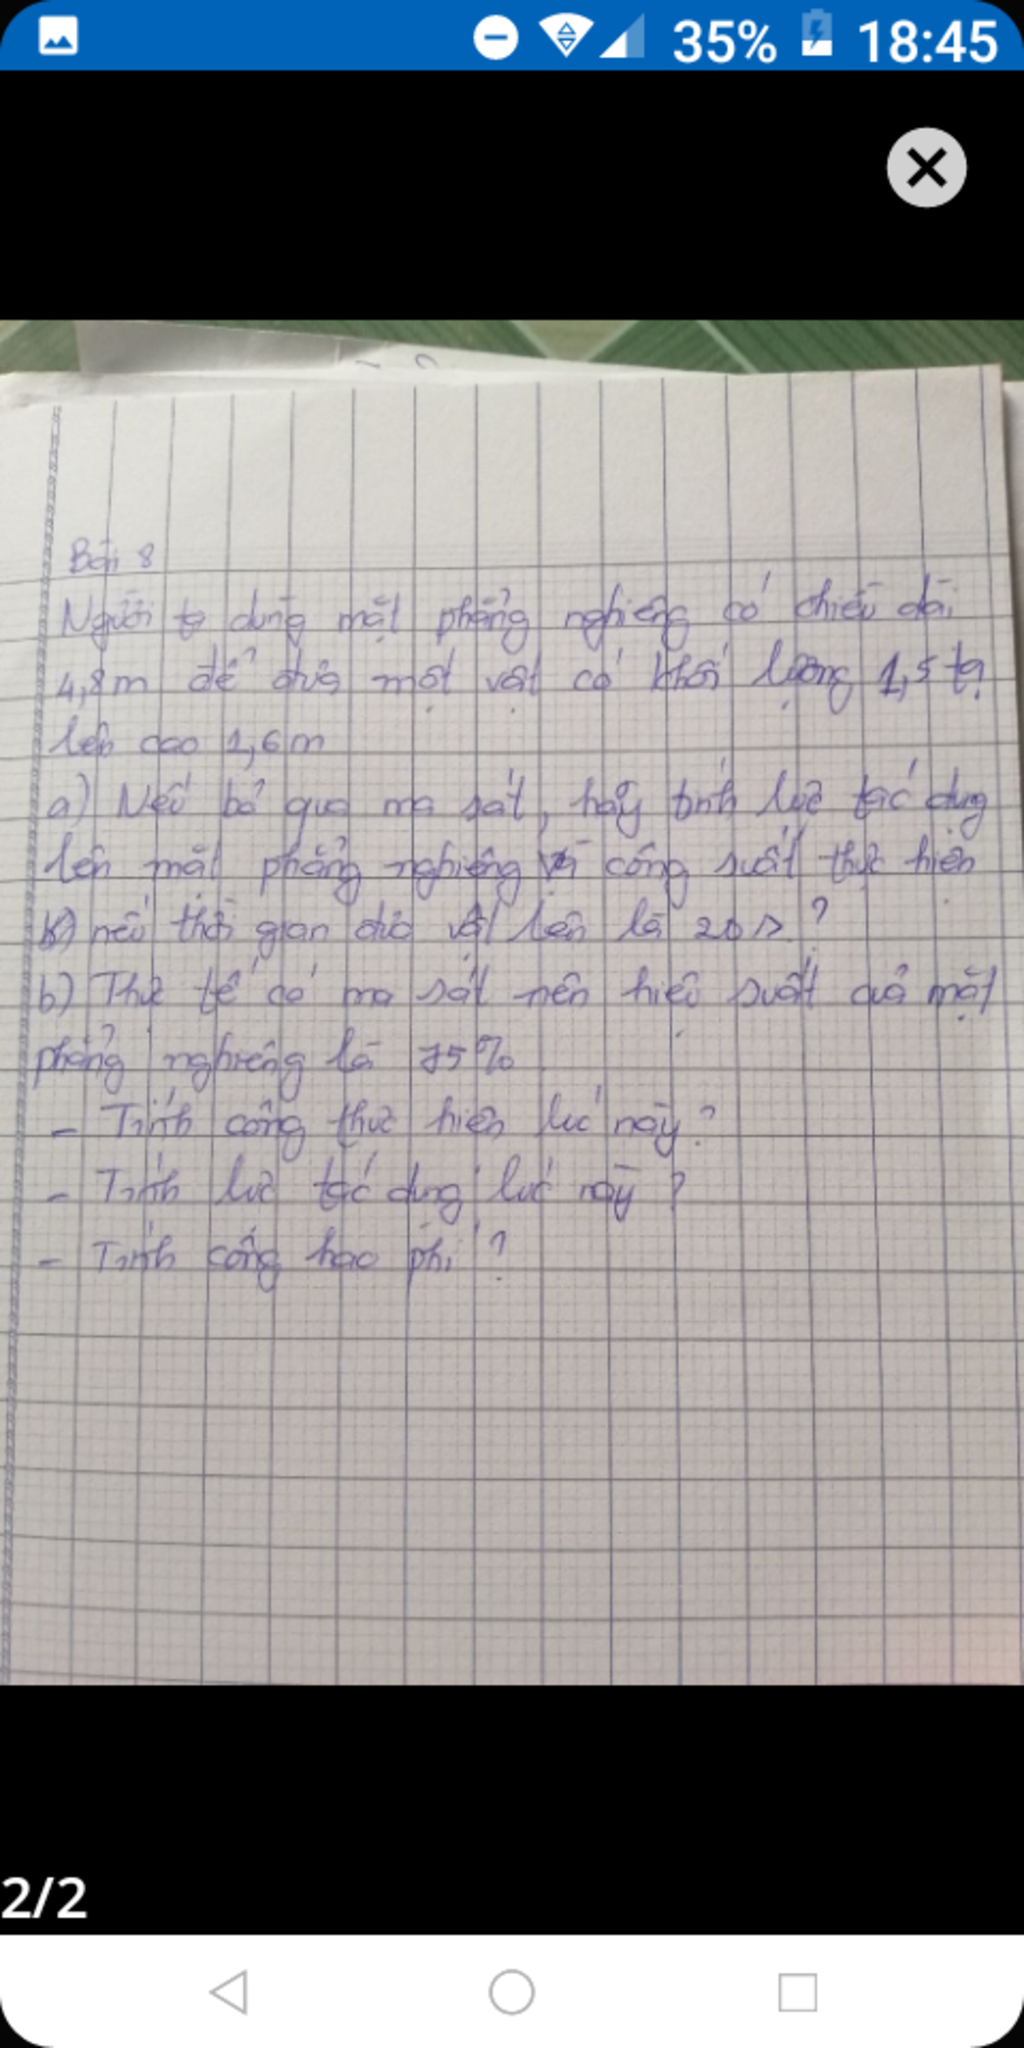 35% 18:45
Bài 8
Người ta dùng mặt phẳng nghiêng có chiều dài
4,8m để đưa một vật có khối lượng 1,5 tạ
lên cao 1,6m
a) Nếu bỏ qua ma sát, hãy tính lực tác dụng
lên mặt phẳng nghiêng và công suất thực hiện
nếu thời gian đưa vật lên là 20s ?
b) Thực tế có ma sát nên hiệu suất của mặt
phẳng nghiêng là 75%
- Tính công thực hiện lúc này?
- Tính lực tác dụng lúc này ?
- Tính công hao phí ?
2/2